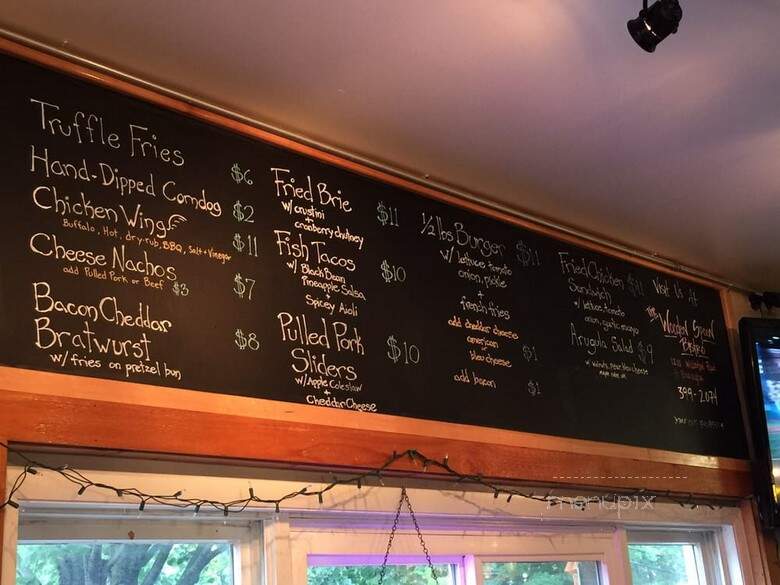 Truffle Fries $6
Hand-Dipped Corndog $2
Chicken Wings $11
Buffalo, Hot, dry-rub, BBQ, Salt + Vinegar
Cheese Nachos $7
add Pulled Pork or Beef $3
Bacon Cheddar
Bratwurst $8
w/ fries on pretzel bun
Fried Brie $11
w/ crustini
+
cranberry chutney
Fish Tacos $10
w/ Black Bean
Pineapple Salsa
+
Spicey Aioli
Pulled Pork
Sliders $10
w/ Apple Coleslaw
+
Cheddar Cheese
1/2 lbs Burger $11
w/ lettuce tomato
onion, pickle
+
french fries
add cheddar cheese
american
or
bleu cheese $1
add bacon $1
Fried Chicken
Sandwich
w/ lettuce, tomato
onion, garlic mayo
Arugula Salad $9
w/ walnuts, pear, bleu cheese
Visit Us At
The
Wooden Spoon
399-2074
menupix